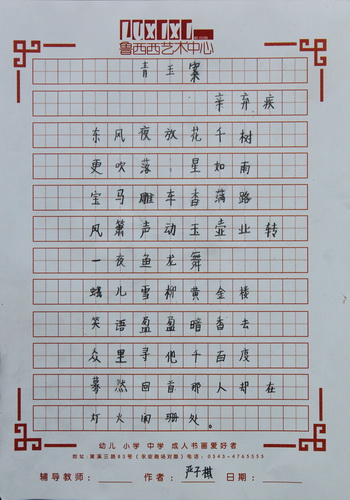 LUXIXI
鲁西西艺术中心
青玉案
辛弃疾
东风夜放花千树
更吹落:星如雨
宝马雕车香满路
风箫声动玉壶业转
一夜鱼龙舞
蛾儿雪柳黄金楼
笑语盈盈暗香去
众里寻他千百度
蓦然回首那人却在
灯火阑珊处。
幼儿 小学 中学 成人书画爱好者
地址:黄溪三路83号(永安商场对面) 电话:0543-4765555
辅导教师: 作者:严子 日期: